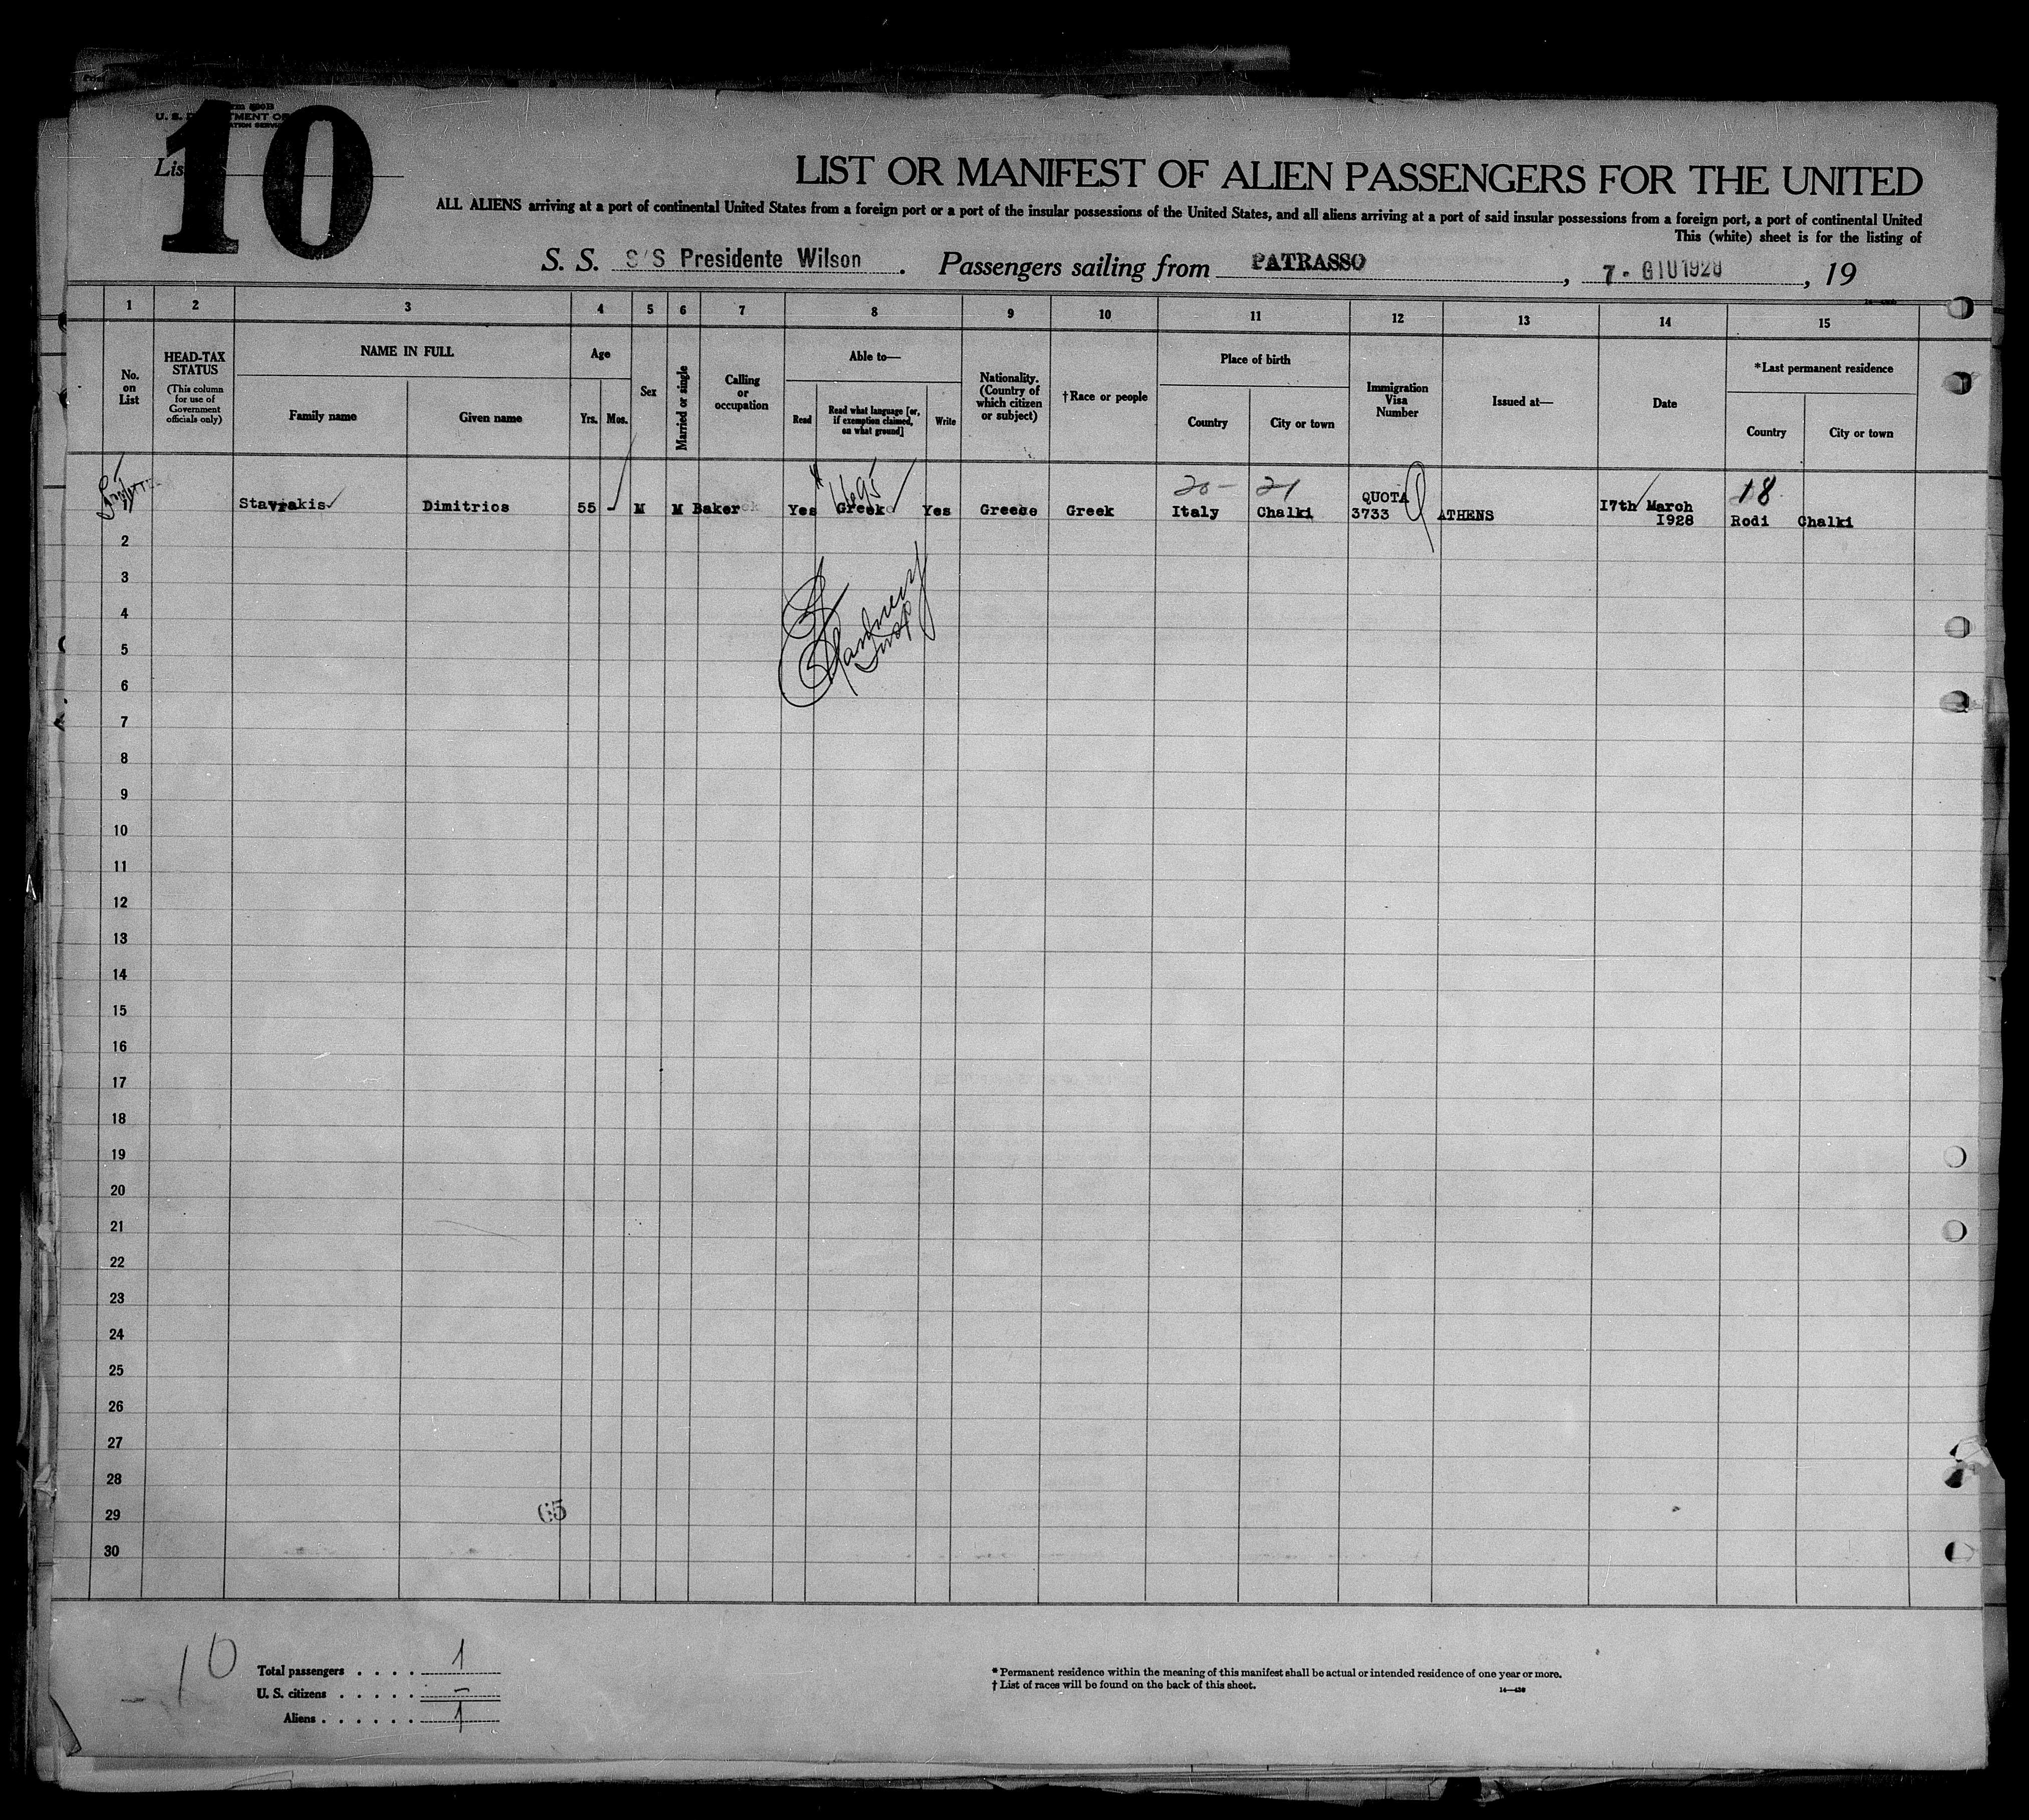 10
U. S. D TMENT OF
LIST OR MANIFEST OF ALIEN PASSENGERS FOR THE UNITED
ALL ALIENS arriving at a port of continental United States from a foreign port or a port of the insular possessions of the United States, and all aliens arriving at a port of said insular possessions from a foreign port, a port of continental United
This (white) sheet is for the listing of
S. S. S/S Presidente Wilson . Passengers sailing from PATRASSO , 7 - GIU 1928 , 19
1 2 3 4 5 6 7 8 9 10 11 12 13 14 15
No. on List
HEAD-TAX STATUS
(This column for use of Government officials only)
NAME IN FULL
Family name
Given name
Age
Yrs.
Mos.
Sex
Married or single
Calling or occupation
Able to—
Read
Read what language [or, if exemption claimed, on what ground]
Write
Nationality. (Country of which citizen or subject)
†Race or people
Place of birth
Country
City or town
Immigration Visa Number
Issued at—
Date
*Last permanent residence
Country
City or town
20- 21 18
Stavrakis Dimitrios 55 - M M Baker Yes Greek Yes Greece Greek Italy Chalki QUOTA 3733 ATHENS 17th March 1928 Rodi Chalki
2
3
4
5
6
7
8
9
10
11
12
13
14
15
16
17
18
19
20
21
22
23
24
25
26
27
28
29
65
30
10
Total passengers . . . . 1
U. S. citizens . . . . . –
Aliens . . . . . . 1
* Permanent residence within the meaning of this manifest shall be actual or intended residence of one year or more.
† List of races will be found on the back of this sheet.